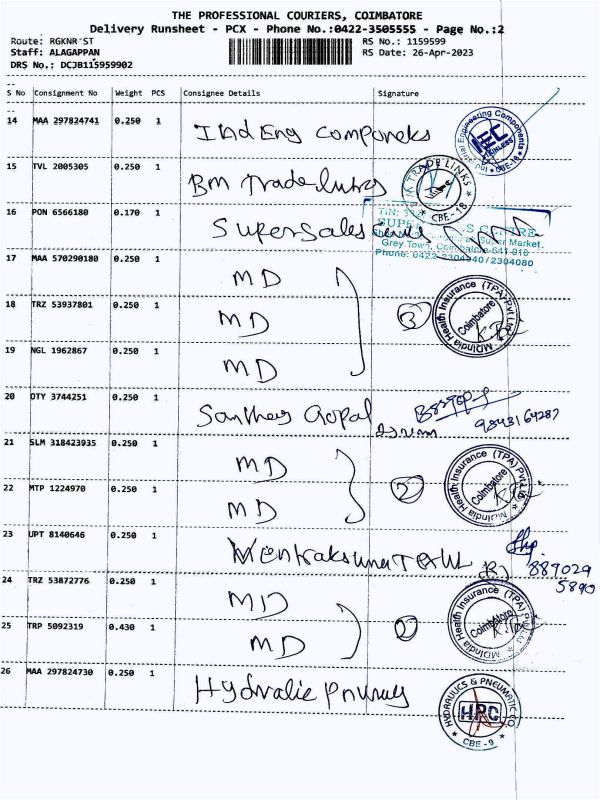 THE PROFESSIONAL COURIERS, COIMBATORE
Delivery Runsheet - PCX - Phone No.:0422-3505555 - Page No.:2
Route: RGKNR ST
RS No.: 1159599
Staff: ALAGAPPAN
RS Date: 26-Apr-2023
DRS No.: DCJB115959902
S No Consignment No Weight PCS Consignee Details Signature
14 MAA 297824741 0.250 1 Ind Eng Componets
Engineering Components
IEC
STAINLESS
CBE-18
15 TVL 2005305 0.250 1 BM Trade links
M TRADE LINKS
CBE-18
16 PON 6566180 0.170 1 Super Sales
TIN:
SUPER S CENTRE
Super Market,
Grey Town, Coimbatore-641 018
Phone: 0422-2304040/2304080
17 MAA 570290180 0.250 1 MD
18 TRZ 53937801 0.250 1 MD 3
MDIndia Health Insurance (TPA) Pvt Ltd
Coimbatore
19 NGL 1962867 0.250 1 MD
20 OTY 3744251 0.250 1 Gopal
21 SLM 318423935 0.250 1 MD
22 MTP 1224970 0.250 1 MD 2
MDIndia Health Insurance (TPA) Pvt Ltd
Coimbatore
23 UPT 8140646 0.250 1
887029
5890
24 TRZ 53872776 0.250 1 MD
25 TRP 5092319 0.430 1 MD 2
MDIndia Health Insurance (TPA)
Coimbatore
26 MAA 297824730 0.250 1 Hydralic
HYDRAULICS & PNEUMATIC CO
HPC
CBE-9